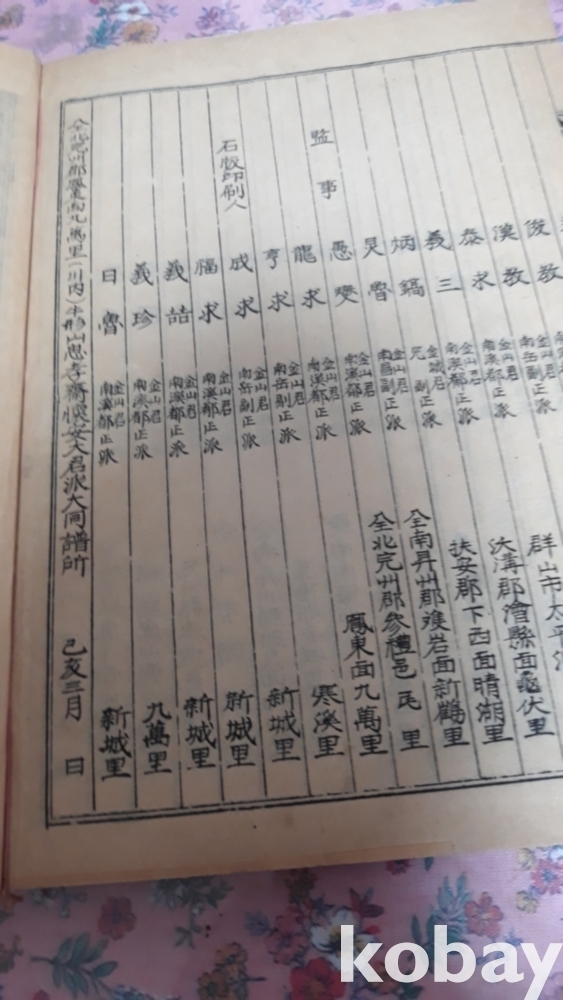 俊教
漢教
泰求 金山君 南溪都正派 群山市太平
義三 金山君 南溪都正派 沃溝郡澮縣面龜伏里
炳鎬 金城君 副正派 扶安郡下西面晴湖里
炅魯 金山君 南昌副正派 全南昇州郡雙岩面新鶴里
監事 愚燮 金山君 南溪都正派 全北完州郡參禮邑瓦里
龍求 金山君 南溪都正派 鳳東面九萬里
亨求 金山君 南岳副正派 寒溪里
石版印刷人 成求 金山君 南岳副正派 新城里
福求 金山君 南溪都正派 新城里
義喆 金山君 南溪都正派 新城里
義珍 金山君 南溪都正派 九萬里
日魯 金山君 南溪都正派 新城里
全北完州郡鳳東面九萬里(川內)牛形山思孝齋懷安大君派大同譜所 己亥三月 日
kobay